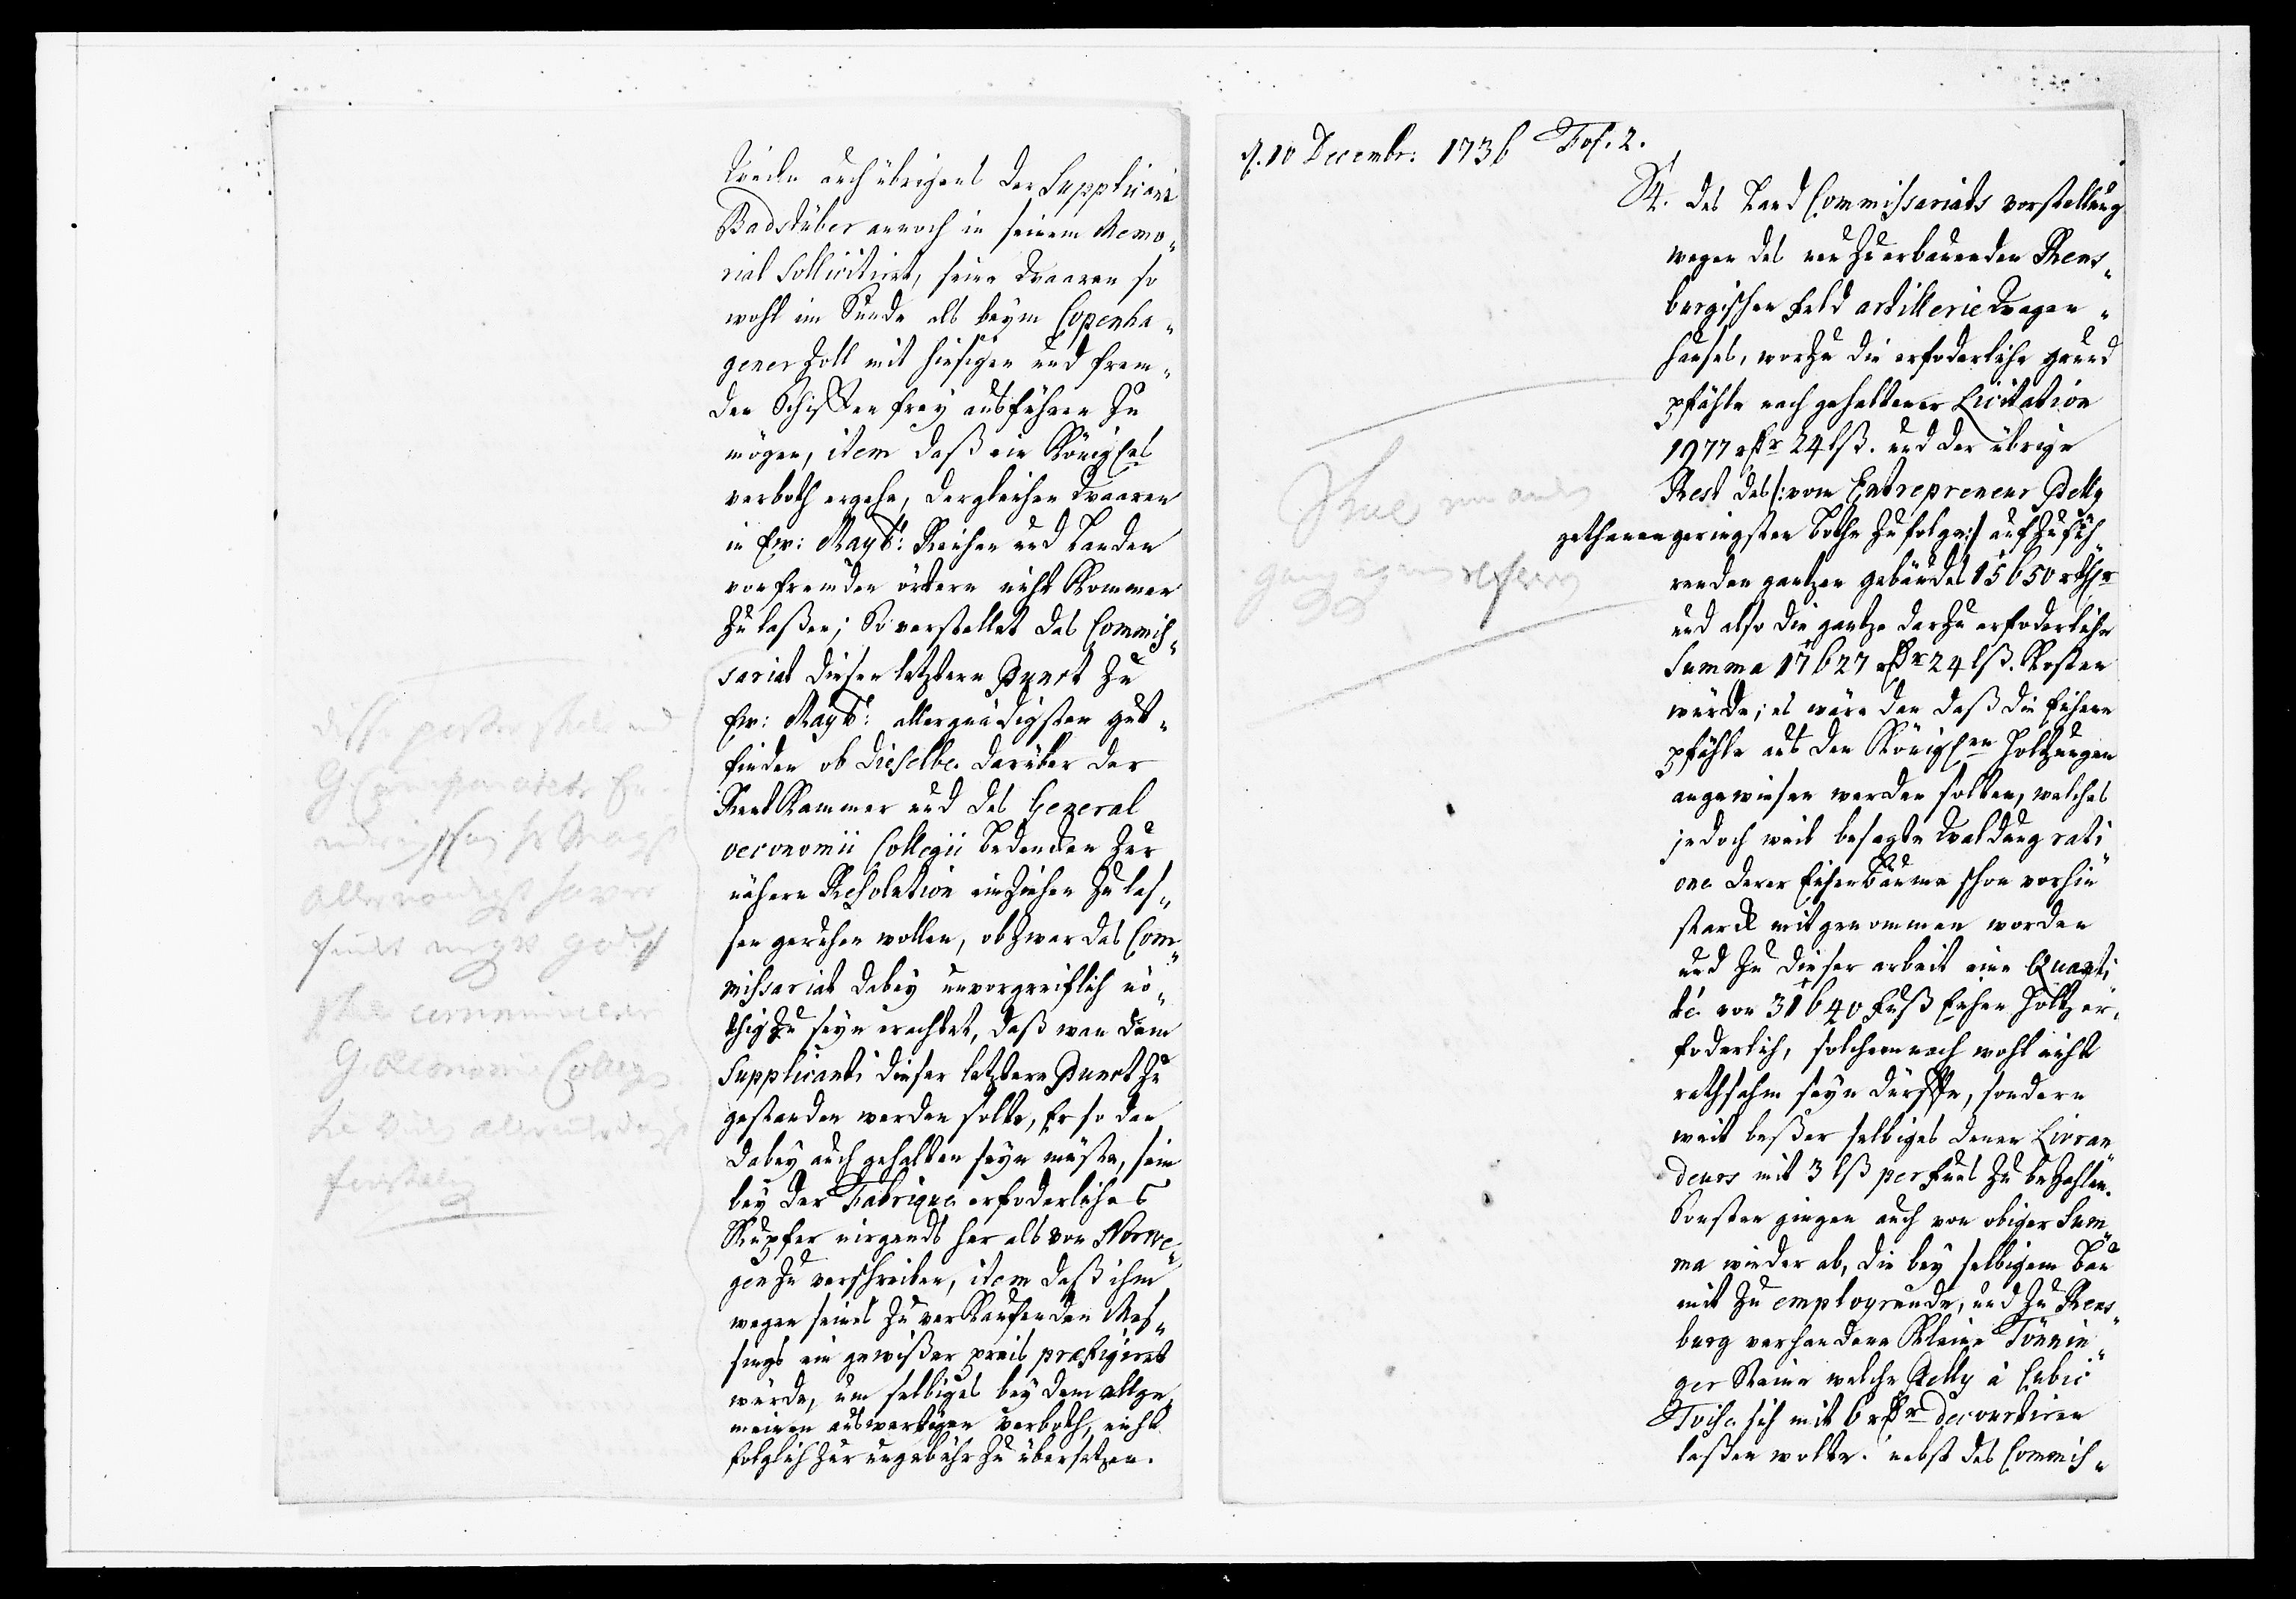 Wie auch übrigens der Supplicant
Badstüber annoch in seinem Memo„
rial sollicitiret, seine Waaren so
wohl im Sunde als beym Copenha„
gener Zoll mit hiesigen und frem„
den Schiffen frey ausführen zu
mögen, item daß ein Königl.es
verboth ergehe, dergleichen Waaren
in Ew: Mayt: Reichen und Landen
von fremden örtern nicht kommen
zu laßen; So verstellet das Commis„
sariat diesen letztern Punct zu
Ew: Mayt: allergnädigsten gut„
finden ob dieselbe darüber der
Rentkammer und des General
oeconomii Collegii bedencken zur
nähern Resolution einziehen zu las„
sen geruhen wollen, ob zwar das Com„
missariat dabey unvorgreiflich nö„
thig zu seyn erachtet, daß wan dem
Supplicanti dieser letztere Punct zu
gestanden werden solte, Er so dan
dabey auch gehalten seyn müste, sein
bey der Fabrique erforderliches
Kupfer nirgends her als von Norwe„
gen zu verschreiben, item daß ihm
wegen seines zu verkaufenden Mes„
sings ein gewißer preis præfigiret
würde, um selbiges bey dem allge„
meinen auswertigen verboth, nicht
folglich zur ungebühr zu übersetzen.
disse poster
allernaadigst
G. Oeconomie Colleg
d. 10 Decembr: 1736 Fol. 2.
4. des Land Commissariats vorstellung
wegen des neu zu erbauenden Rens„
burgischen Feld artillerie Wagen„
hauses, worzu die erfoderliche grund
pfähle nach gehaltener Licitation
1977 rthr 24 lß. und der übrige
Rest des /: vom Entrepreneur Pelly
gethanen geringsten bothe zufolge :/ aufzufüh„
renden gantzen gebäudes 15650 rthr
und also die gantze darzu erfoderliche
Summa 17627 rthr 24 lß. kosten
würde; es wäre dan daß die Eichen
pfähle aus den Königl.en Holtzungen
angewiesen werden solten, welches
jedoch weil besagte Waldung rati„
one derer Eichenbäume schon vorhin
starck mitgenommen worden
und zu dieser arbeit eine Quanti„
té von 31640 Fuß Eichen Holtz er„
foderlich, solchem nach wohl nicht
rathsahm seyn dürffte, sondern
weit beßer selbiges denen Livran„
deurs mit 3 lß per Fues zu bezahlen.
Sonsten gingen auch von obiger Sum„
ma wieder ab, die bey selbigem bau
mit zu employrende, und zu Rens„
burg verhandene kleine Tönnin„
ger Steine welche Pelly à Cubic
Toise sich mit 6 rthr decourtiren
laßen wolte. nebst des Commis„